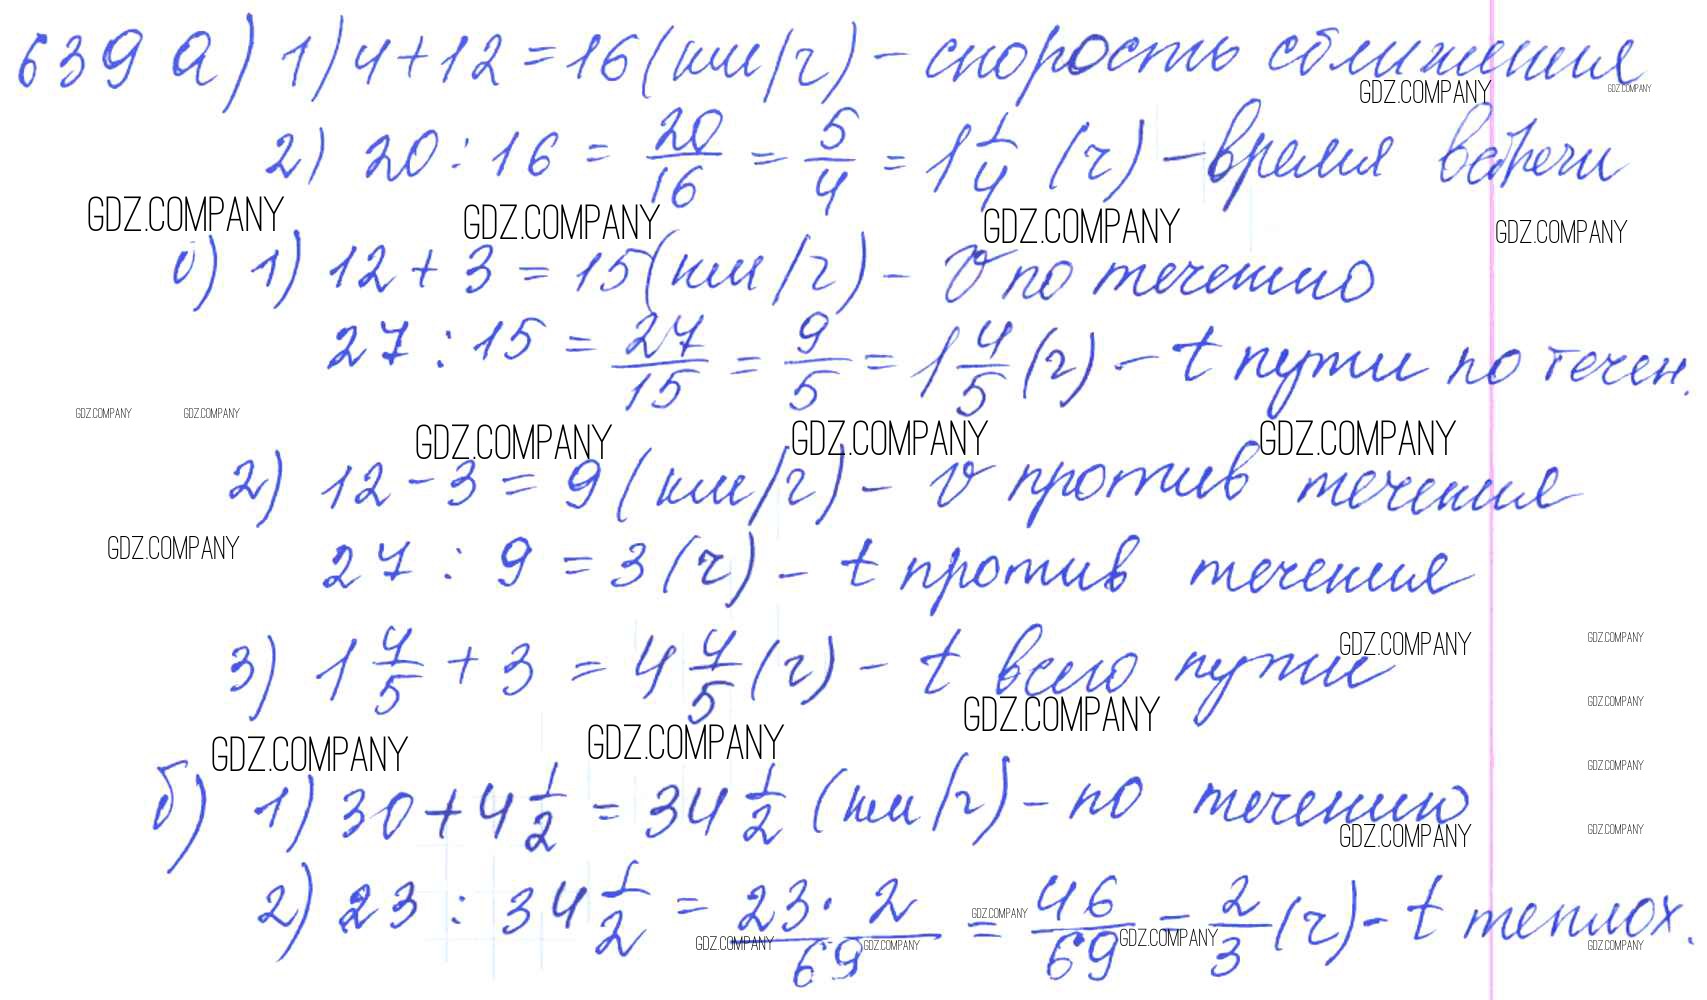 639 а) 1) 4 + 12 = 16 (км/ч) – скорость сближения
GDZ.COMPANY GDZ.COMPANY
2) 20 : 16 = 20/16 = 5/4 = 1 1/4 (ч) – время встречи
GDZ.COMPANY GDZ.COMPANY GDZ.COMPANY GDZ.COMPANY
1) 12 + 3 = 15 (км/ч) – v по течению
27 : 15 = 27/15 = 9/5 = 1 4/5 (ч) – t пути по течен.
GDZ.COMPANY GDZ.COMPANY GDZ.COMPANY GDZ.COMPANY GDZ.COMPANY
2) 12 – 3 = 9 (км/ч) – v против течения
GDZ.COMPANY
27 : 9 = 3 (ч) – t против течения
GDZ.COMPANY GDZ.COMPANY
3) 1 4/5 + 3 = 4 4/5 (ч) – t всего пути
GDZ.COMPANY GDZ.COMPANY
GDZ.COMPANY GDZ.COMPANY GDZ.COMPANY
б) 1) 30 + 4 1/2 = 34 1/2 (км/ч) – по течению
GDZ.COMPANY GDZ.COMPANY
2) 23 : 34 1/2 = 23 · 2/69 = 46/69 = 2/3 (ч) – t теплох.
GDZ.COMPANY GDZ.COMPANY GDZ.COMPANY GDZ.COMPANY GDZ.COMPANY